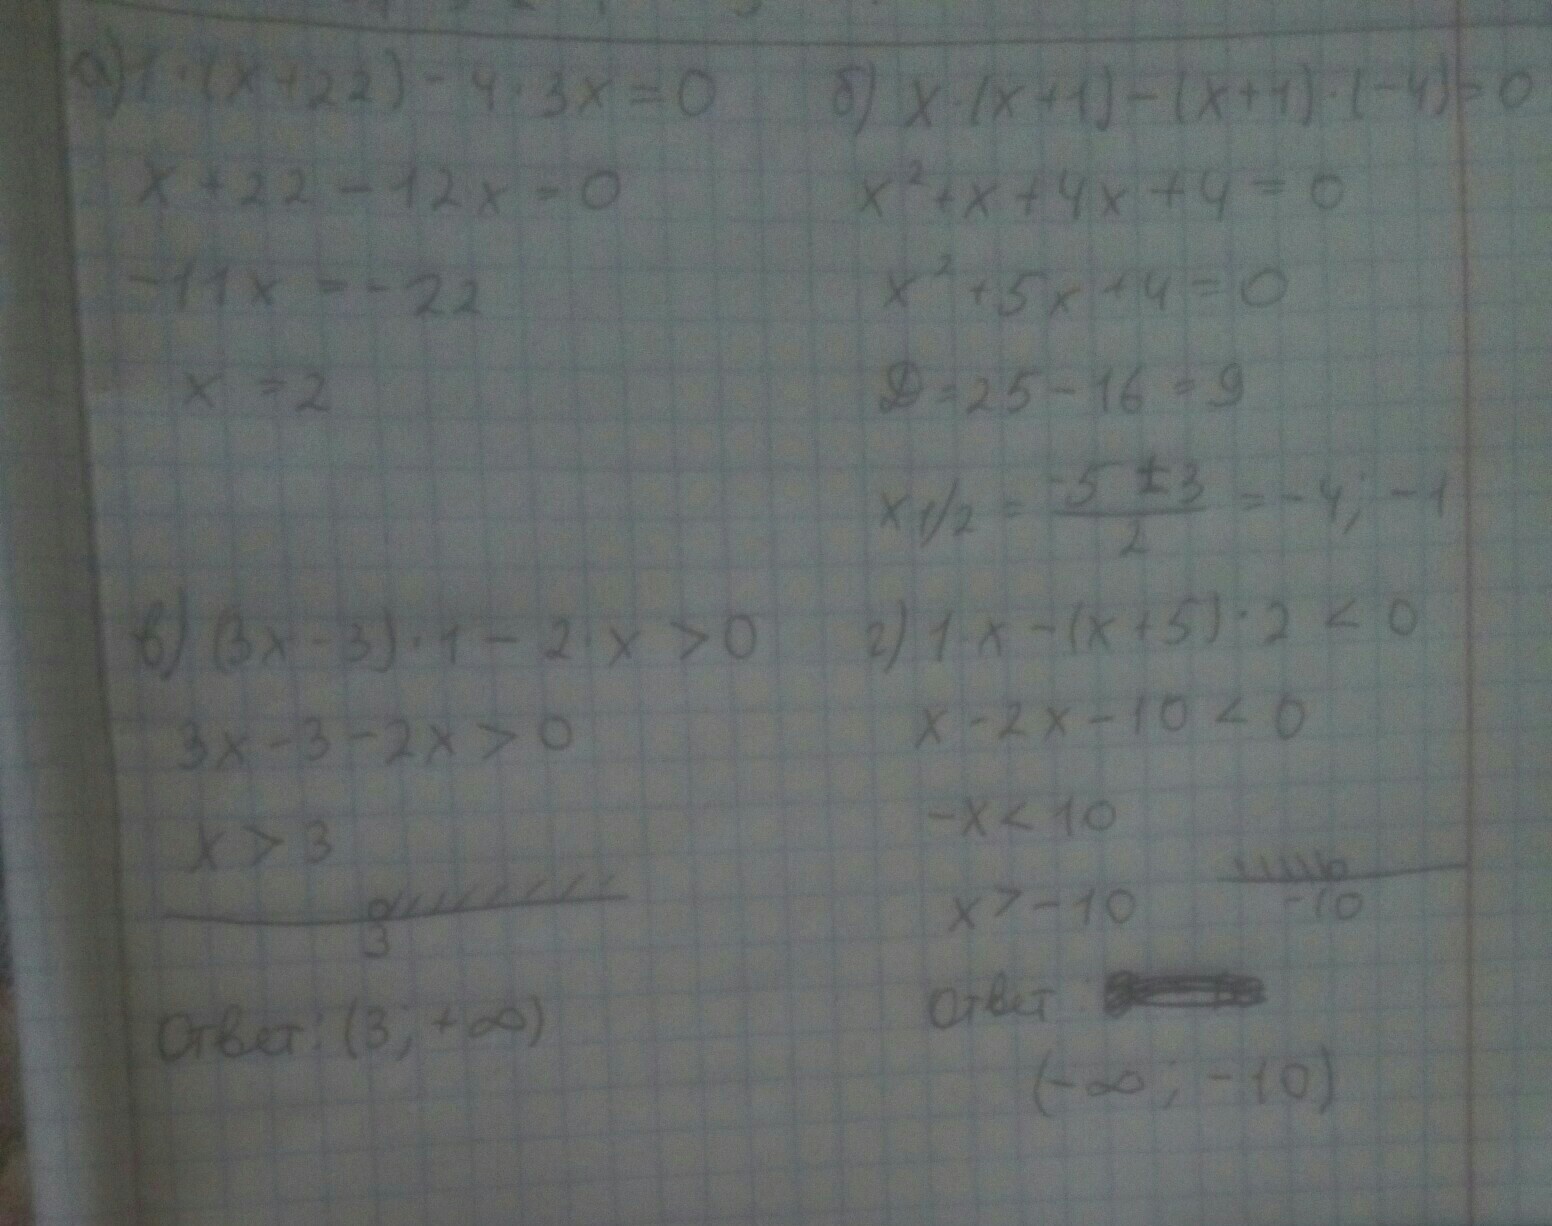 а) 1·(x+22)-4·3x=0
x+22-12x=0
-11x=-22
x=2
б) x·(x+1)-(x+1)·(-4)=0
x²+x+4x+4=0
x²+5x+4=0
D=25-16=9
x1/2 = (-5±3)/2 = -4; -1
в) (3x-3)·1-2·x>0
3x-3-2x>0
x>3
3
Ответ: (3; +∞)
г) 1·x-(x+5)·2<0
x-2x-10<0
-x<10
x>-10
-10
Ответ:
(-∞; -10)